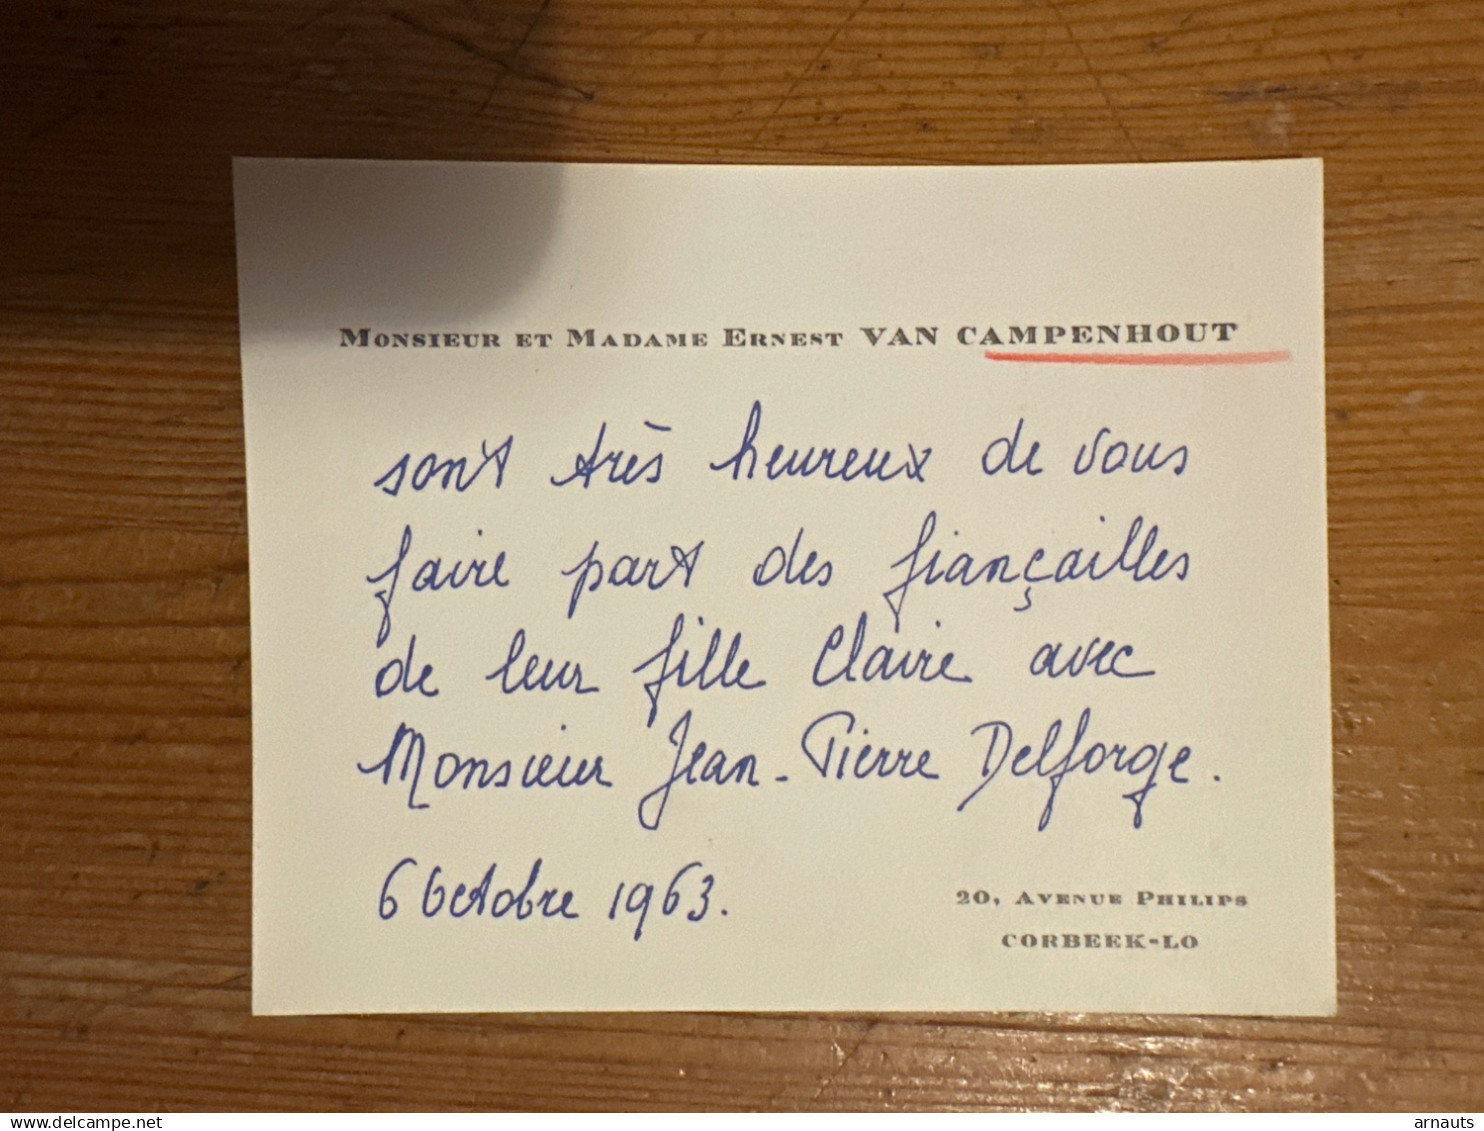 MONSIEUR ET MADAME ERNEST VAN CAMPENHOUT
sont très heureux de vous
faire part des fiançailles
de leur fille Claire avec
Monsieur Jean-Pierre Delforge.
6 Octobre 1963.
20, AVENUE PHILIPS
CORBEEK-LO
www.delcampe.net
arnauts